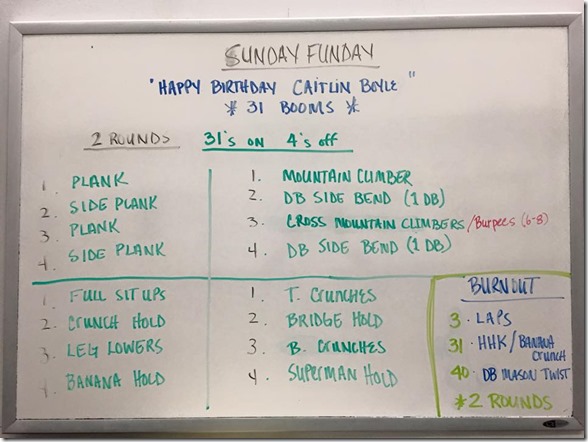 SUNDAY FUNDAY
"HAPPY BIRTHDAY CAITLIN BOYLE"
* 31 BOOMS *
2 ROUNDS 31's ON 4's off
1. PLANK
2. SIDE PLANK
3. PLANK
4. SIDE PLANK
1. MOUNTAIN CLIMBER
2. DB SIDE BEND (1 DB)
3. CROSS MOUNTAIN CLIMBERS /Burpees (6-8)
4. DB SIDE BEND (1 DB)
1. FULL SIT UPS
2. CRUNCH HOLD
3. LEG LOWERS
4. BANANA HOLD
1. T. CRUNCHES
2. BRIDGE HOLD
3. B. CRUNCHES
4. SUPERMAN HOLD
BURNOUT
3 · LAPS
31 · HHK / BANANA
CRUNCH
40 · DB MASON TWIST
*2 ROUNDS